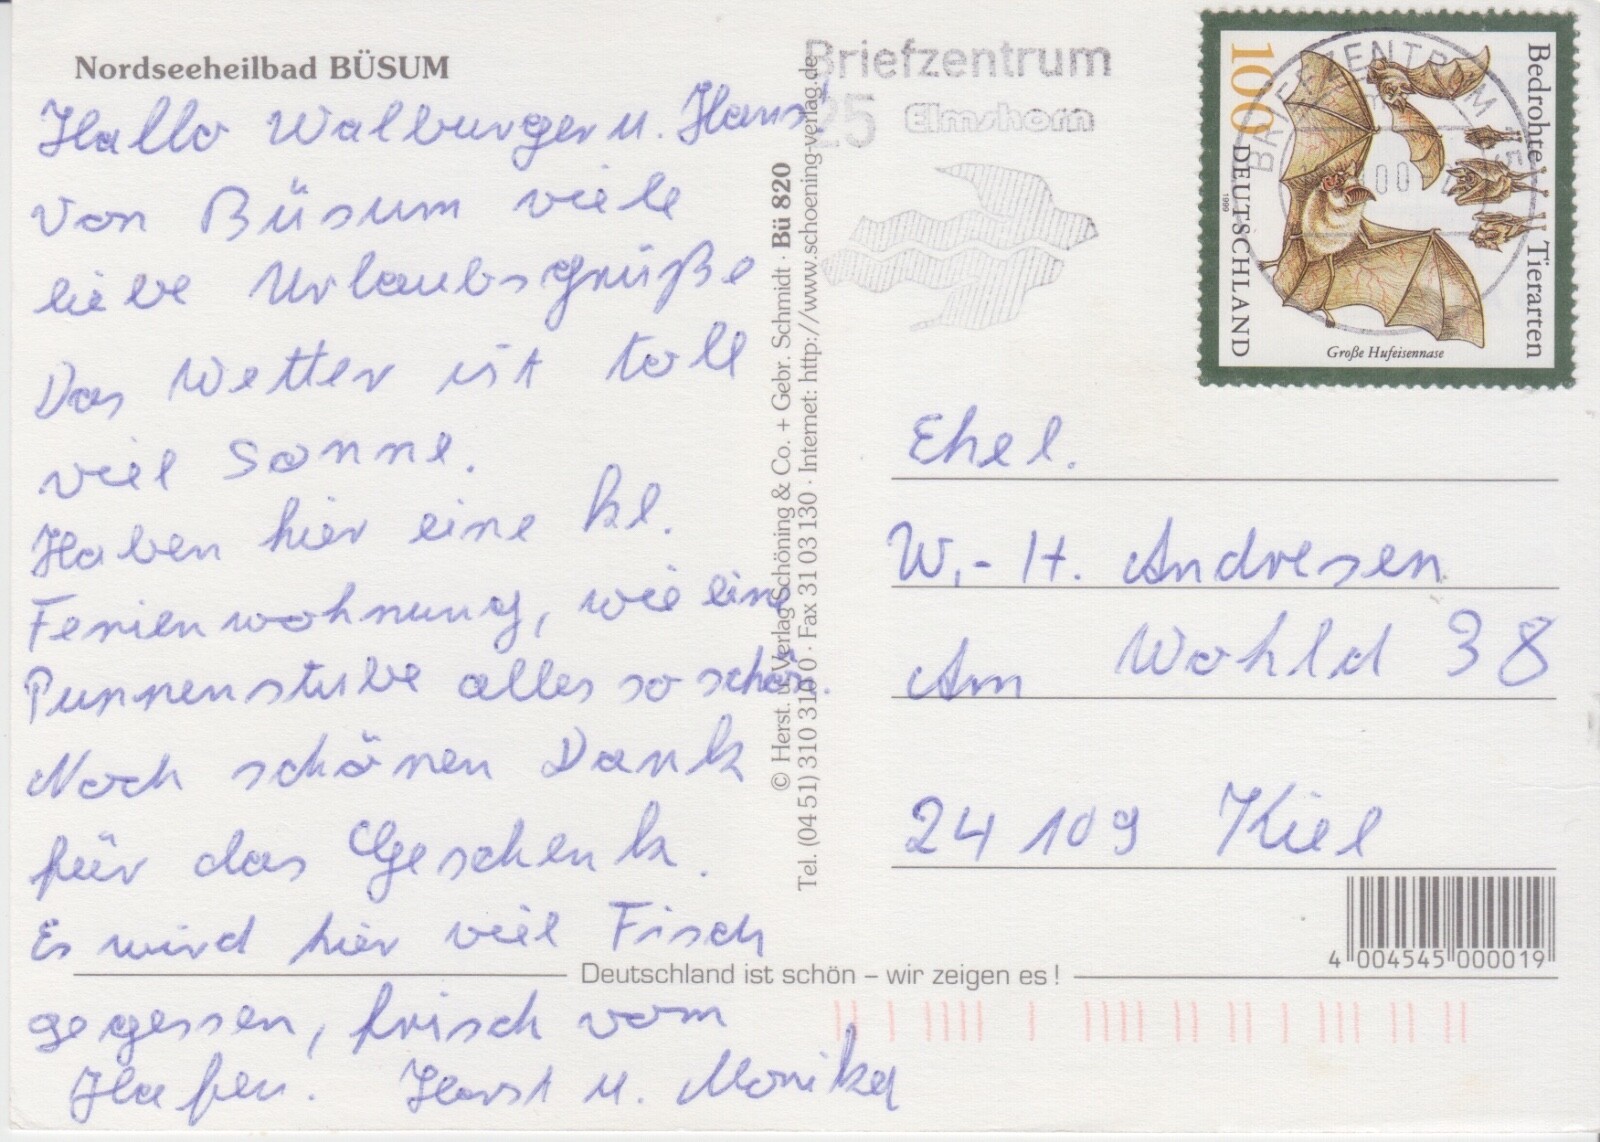 Nordseeheilbad BÜSUM
Hallo Walburger u. Hans!
Von Büsum viele
liebe Urlaubsgrüße
Das Wetter ist toll
viel Sonne.
Haben hier eine kl.
Ferienwohnung, wie eine
Punnenstube alles so schön.
Noch schönen Dank
für das Geschenk.
Es wird hier viel Fisch
gegessen, frisch vom
Hafen. Horst u. Monika
© Herst. u. Verlag Schöning & Co. + Gebr. Schmidt · Bü 820
Tel. (04 51) 310 310 0 · Fax 31 03 130 · Internet: http://www.schoening-verlag.de
Briefzentrum
25 Elmshorn
BRIEFZENTRUM
100 DEUTSCHLAND
1999
Bedrohte Tierarten
Große Hufeisennase
Ehel.
W.-H. Andresen
Am Wohld 38
24109 Kiel
4 004545 000019
Deutschland ist schön – wir zeigen es!